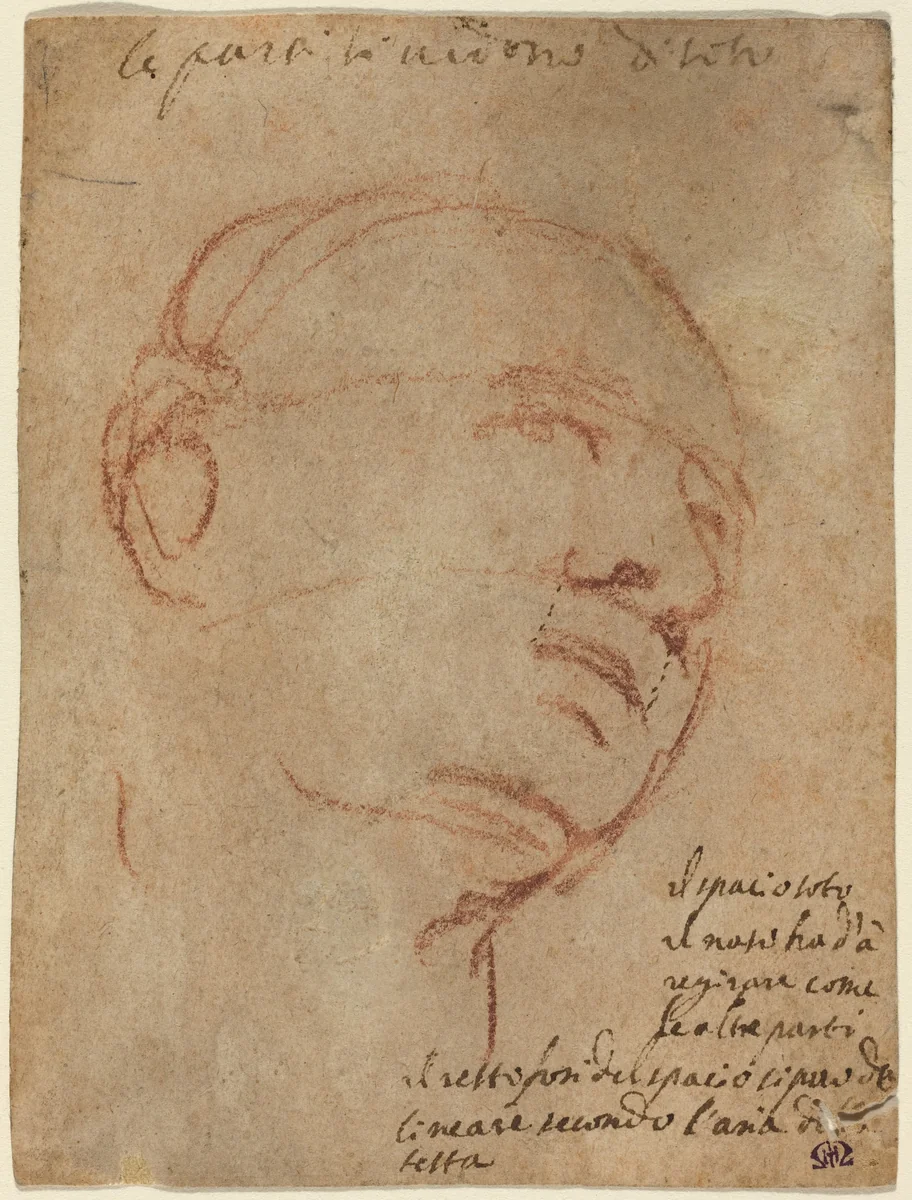 le parti si vedono di soto
il spacio soto
il naso ha d'à
regirare come
le altre parti
il resto fori del spacio si può de
lineare secondo l'aria di
testa